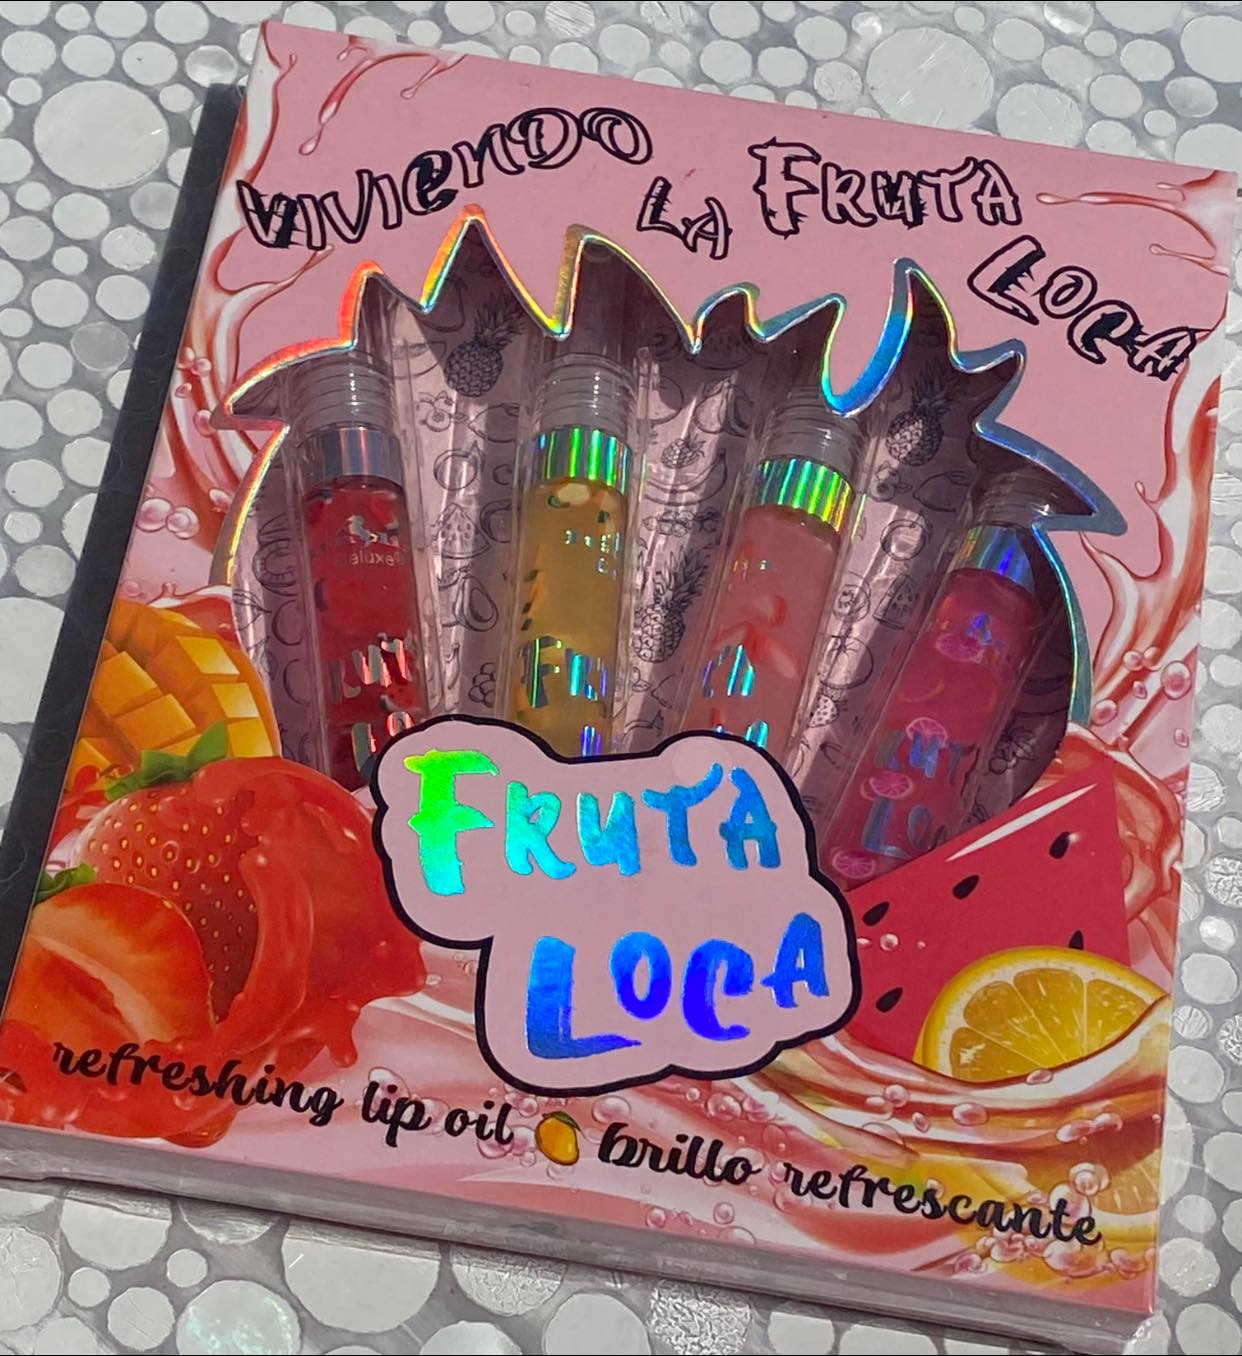 VIVIENDO LA FRUTA LOCA
deluxe
FRU
FRUTA
LOCA
refreshing lip oil brillo refrescante